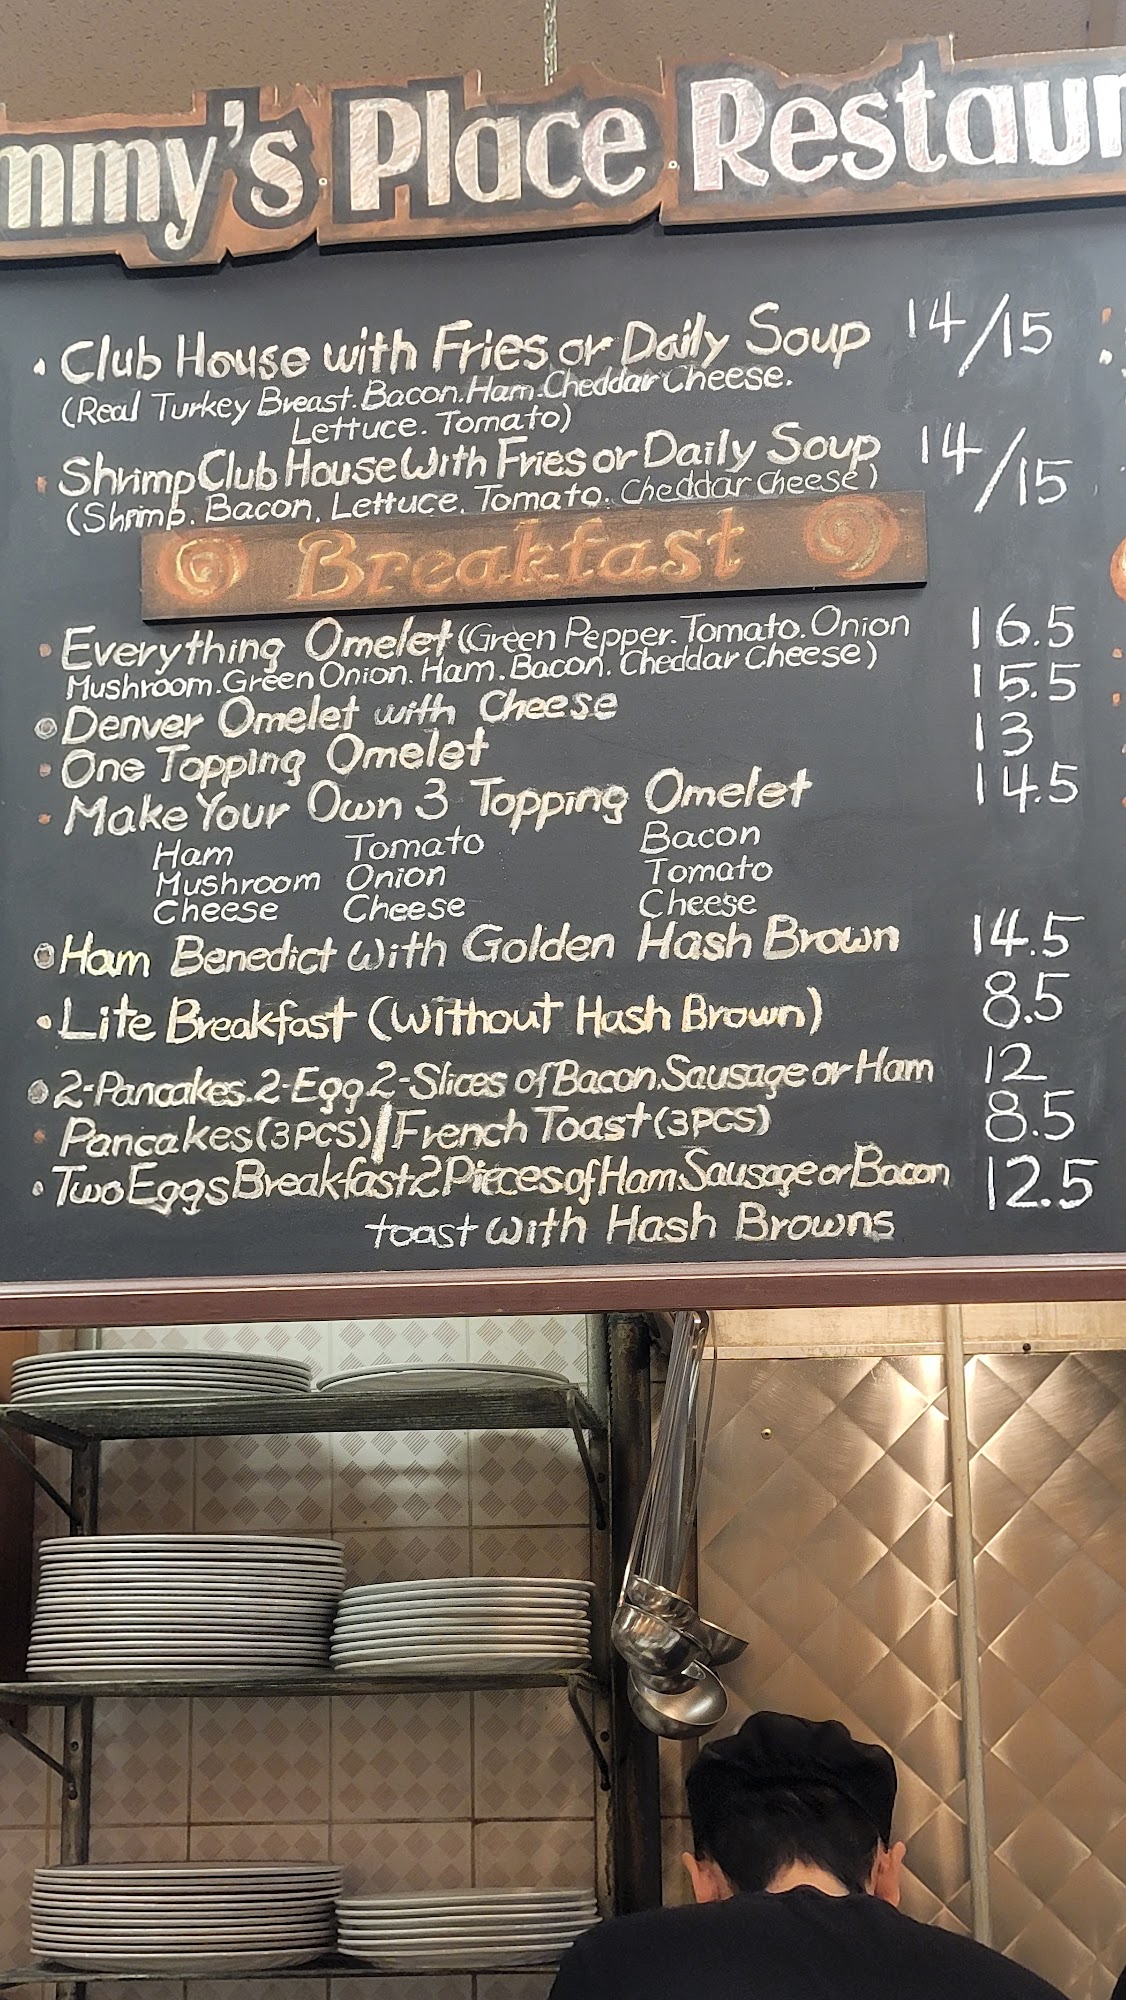 mmy's Place Restaur
Club House with Fries or Daily Soup 14/15
(Real Turkey Breast. Bacon. Ham. Cheddar Cheese.
Lettuce. Tomato)
Shrimp Club House With Fries or Daily Soup 14/15
(Shrimp. Bacon. Lettuce. Tomato. Cheddar Cheese)
Breakfast
Everything Omelet (Green Pepper. Tomato. Onion 16.5
Mushroom. Green Onion. Ham. Bacon. Cheddar Cheese)
Denver Omelet with Cheese 15.5
One Topping Omelet 13
Make Your Own 3 Topping Omelet 14.5
Ham Tomato Bacon
Mushroom Onion Tomato
Cheese Cheese Cheese
Ham Benedict with Golden Hash Brown 14.5
Lite Breakfast (Without Hash Brown) 8.5
2-Pancakes. 2-Egg 2-Slices of Bacon. Sausage or Ham 12
Pancakes (3PCS) / French Toast (3PCS) 8.5
Two Eggs Breakfast 2 Pieces of Ham. Sausage or Bacon 12.5
toast with Hash Browns